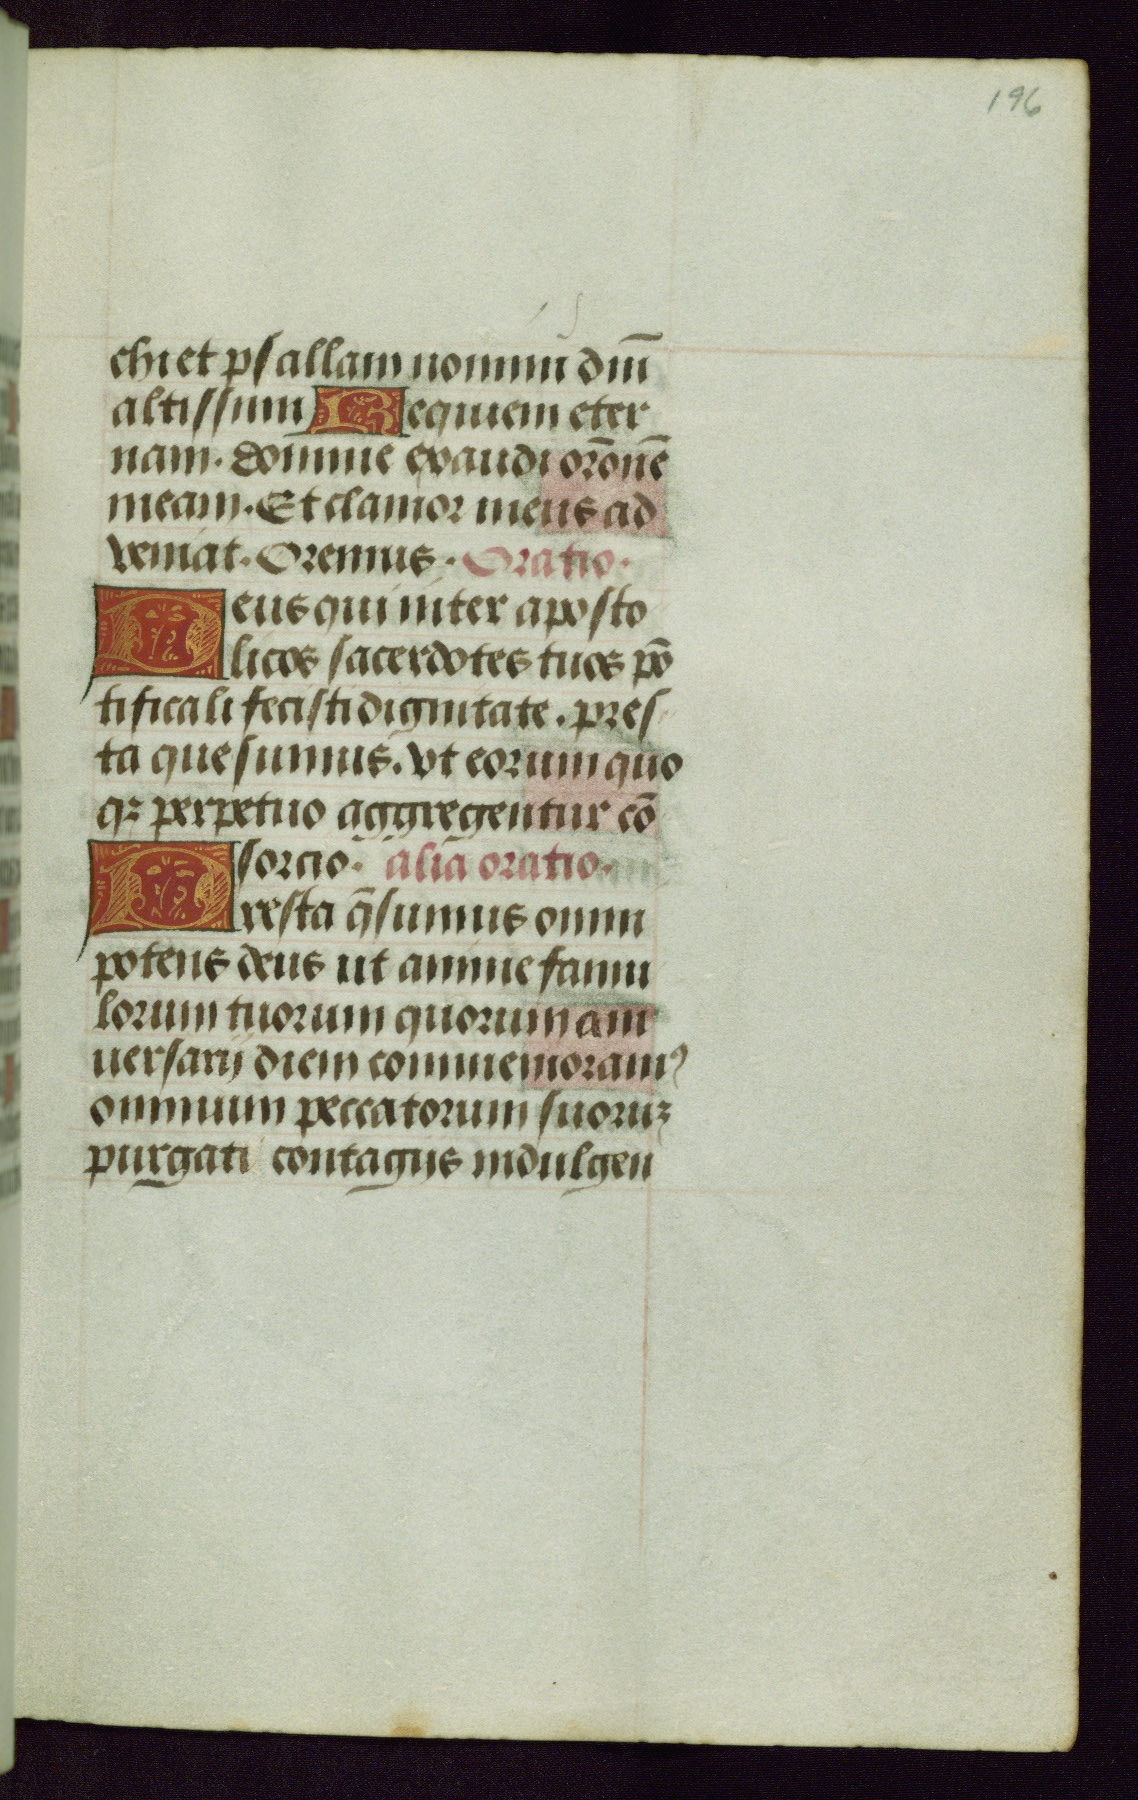 196
chi et psallam nomini dm̄
altissimi Requiem eter
nam. domine exaudi orōnē
meam. Et clamor meus ad
veniat. Oremus. Oratio.
Deus qui inter aposto
licos sacerdotes tuos pō
tificali fecisti dignitate. pres
ta quesumus. vt eorum quo
qꝫ perpetuo aggregentur cō
sorcio. alia oratio.
Presta q̄sumus omni
potens deus ut anime famu
lorum tuorum quorum ani
uersarij diem commemoramꝰ
omnium peccatorum suoruꝫ
purgati contagijs indulgen